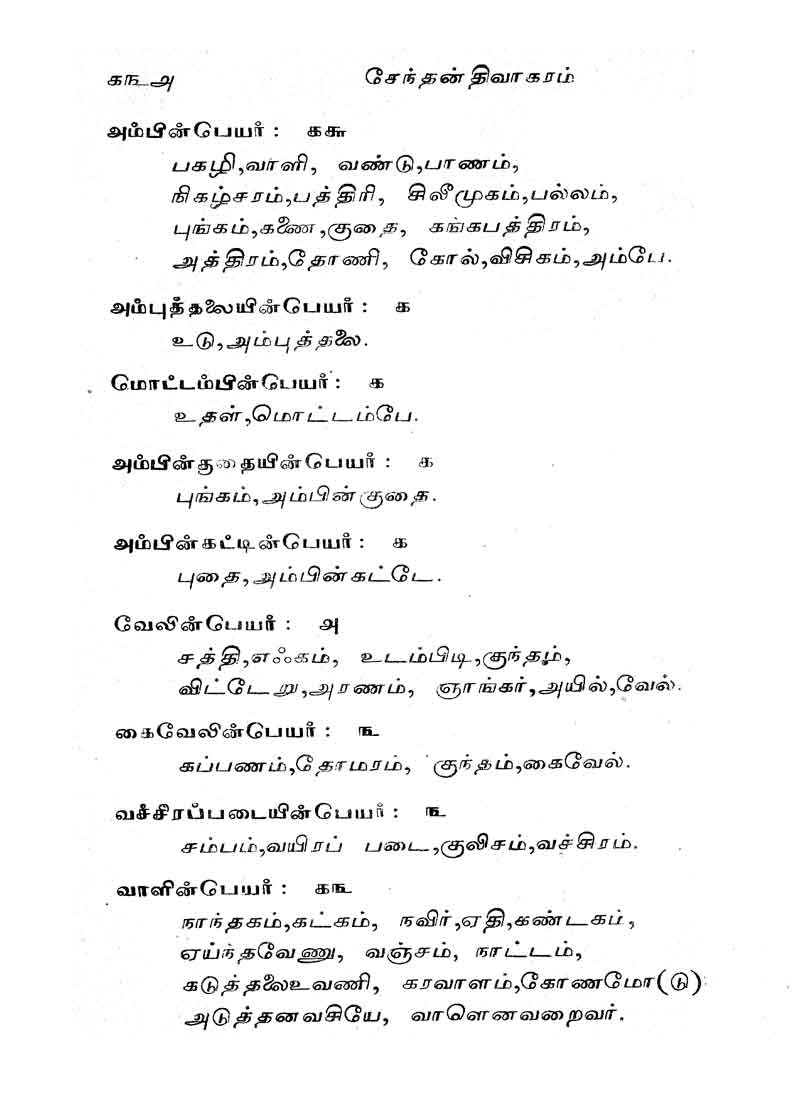 ௧௩௮ சேந்தன் திவாகரம்
அம்பின்பெயர் : ௧௬
பகழி,வாளி, வண்டு,பாணம்,
நிகழ்சரம்,பத்திரி, சிலீமுகம்,பல்லம்,
புங்கம்,கணை,குதை, கங்கபத்திரம்,
அத்திரம்,தோணி, கோல்,விசிகம்,அம்பே.
அம்புத்தலையின்பெயர் : ௧
உடு,அம்புத்தலை.
மொட்டம்பின்பெயர் : ௧
உதள்,மொட்டம்பே.
அம்பின்குதையின்பெயர் : ௧
புங்கம்,அம்பின்குதை.
அம்பின்கட்டின்பெயர் : ௧
புதை,அம்பின்கட்டே.
வேலின்பெயர் : ௮
சத்தி,எஃகம், உடம்பிடி,குந்தம்,
விட்டேறு,அரணம், ஞாங்கர்,அயில்,வேல்.
கைவேலின்பெயர் : ௩
கப்பணம்,தோமரம், குந்தம்,கைவேல்.
வச்சிரப்படையின்பெயர் : ௩
சம்பம்,வயிரப் படை,குலிசம்,வச்சிரம்.
வாளின்பெயர் : ௧௩
நாந்தகம்,கட்கம், நவிர்,ஏதி,கண்டகம்,
ஏய்ந்தவேணு, வஞ்சம், நாட்டம்,
கடுத்தலைஉவணி, கரவாளம்,கோணமோ(டு)
அடுத்தனவசியே, வாளெனவறைவர்.